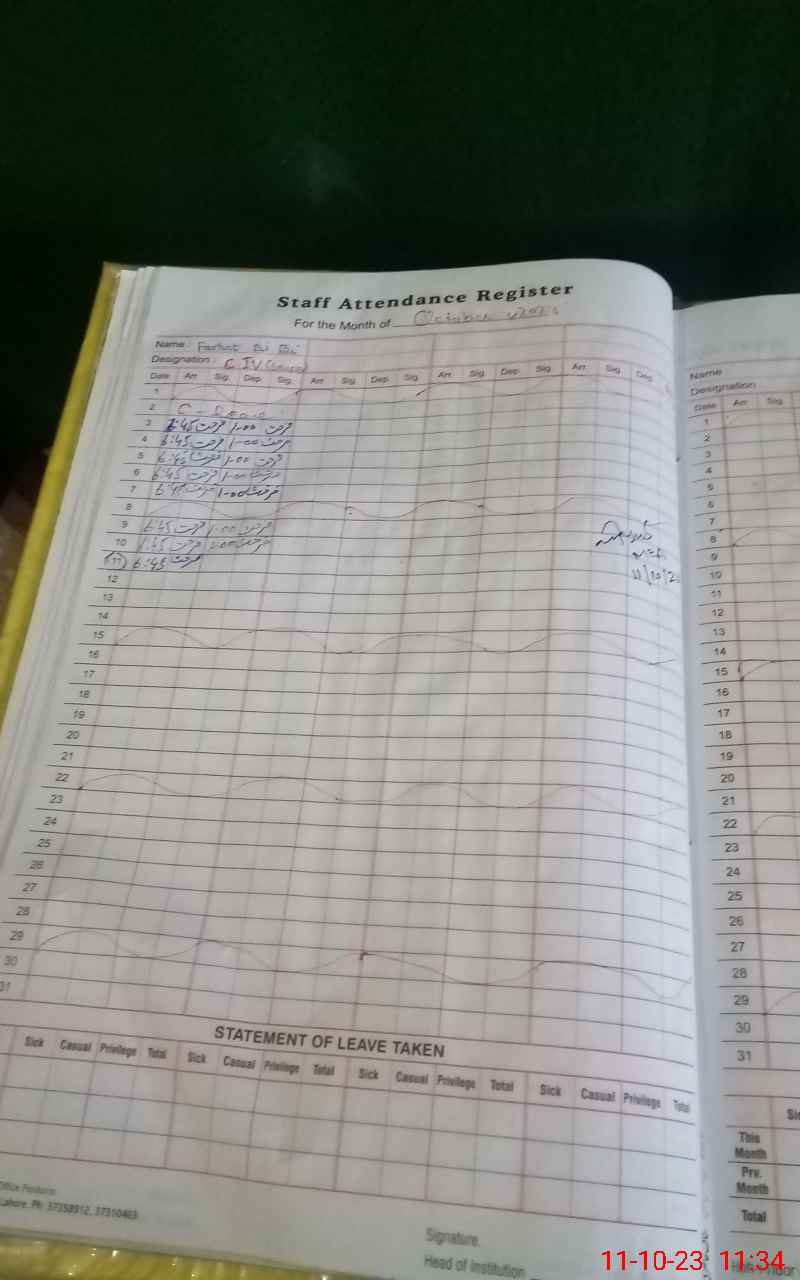 Staff Attendance Register
For the Month of October 2023
Name : Farhat Bi Bi
Designation : C IV
Date Arr Sig Dep Sig Arr Sig Dep Sig Arr Sig Dep Sig Arr Sig Dep
1
2 C - Leave
3 6:45 فرحت 1-00 فرحت
4 6:45 فرحت 1-00 فرحت
5 6:45 فرحت 1-00 فرحت
6 6:45 فرحت 1-00 فرحت
7 6:45 فرحت 1-00 فرحت
8
9 6:45 فرحت 1-00 فرحت
10 6:45 فرحت 1-00 فرحت
11 6:45 فرحت
12
13
14
15
16
17
18
19
20
21
22
23
24
25
26
27
28
29
30
31
STATEMENT OF LEAVE TAKEN
Sick Casual Privilege Total Sick Casual Privilege Total Sick Casual Privilege Total Sick Casual Privilege Total
Office Products
Lahore. Ph: 37358912, 37310463
Signature.
Head of Institution
Name
Designation
Date Arr Sig
1
2
3
4
5
6
7
8
9
10
11
12
13
14
15
16
17
18
19
20
21
22
23
24
25
26
27
28
29
30
31
This Month
Prv. Month
Total
11-10-23 11:34